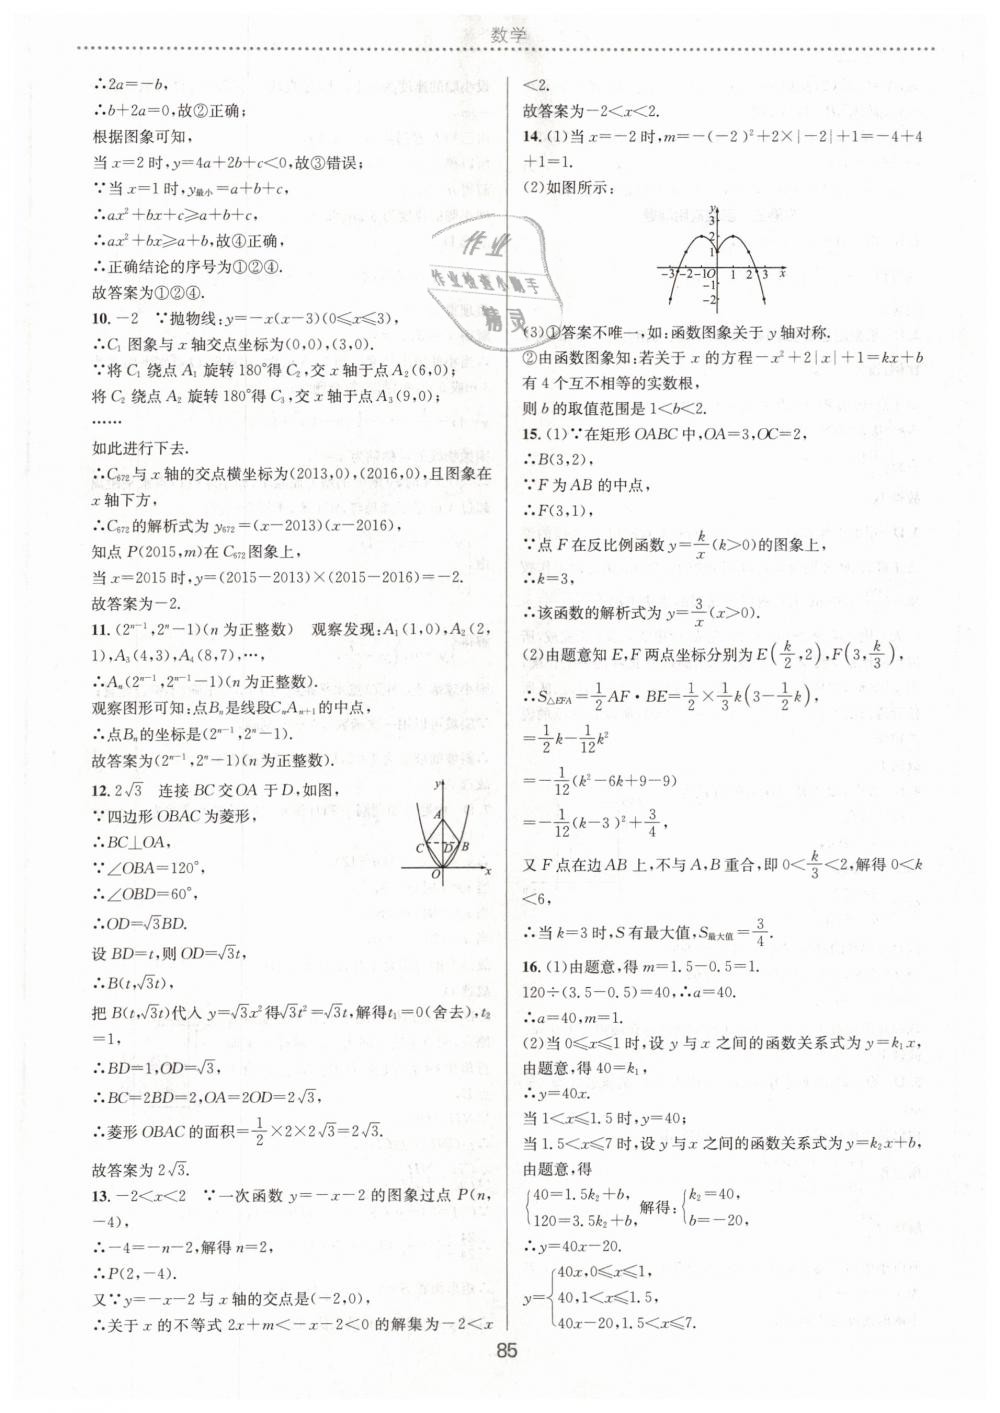 数学
∴2a=-b,
∴b+2a=0,故②正确;
根据图象可知,
当x=2时,y=4a+2b+c<0,故③错误;
∵当x=1时,y最小=a+b+c,
∴ax²+bx+c≥a+b+c,
∴ax²+bx≥a+b,故④正确,
∴正确结论的序号为①②④.
故答案为①②④.
10. -2 ∵抛物线:y=-x(x-3)(0≤x≤3),
∴C₁ 图象与x轴交点坐标为(0,0),(3,0).
∵将 C₁ 绕点 A₁ 旋转180°得 C₂,交x轴于点A₂(6,0);
将 C₂ 绕点 A₂ 旋转180°得C₃,交x轴于点A₃(9,0);
……
如此进行下去.
∴C₆₇₂与x轴的交点横坐标为(2013,0),(2016,0),且图象在
x轴下方,
∴C₆₇₂的解析式为 y₆₇₂=(x-2013)(x-2016),
知点P(2015,m)在C₆₇₂图象上,
当x=2015时,y=(2015-2013)×(2015-2016)=-2.
故答案为-2.
11. (2ⁿ⁻¹,2ⁿ-1)(n为正整数) 观察发现:A₁(1,0),A₂(2,
1),A₃(4,3),A₄(8,7),…,
∴Aₙ(2ⁿ⁻¹,2ⁿ⁻¹-1)(n为正整数).
观察图形可知:点Bₙ是线段CₙAₙ₊₁的中点,
∴点Bₙ的坐标是(2ⁿ⁻¹,2ⁿ-1).
故答案为(2ⁿ⁻¹,2ⁿ-1)(n为正整数).
12. 2√3 连接BC交OA于D,如图,
∵四边形OBAC为菱形,
∴BC⊥OA,
∵∠OBA=120°,
∴∠OBD=60°,
∴OD=√3BD.
设BD=t,则OD=√3t,
∴B(t,√3t),
把B(t,√3t)代入 y=√3x²得√3t²=√3t,解得t₁=0(舍去),t₂
=1,
∴BD=1,OD=√3,
∴BC=2BD=2,OA=2OD=2√3,
∴菱形OBAC的面积=1/2×2×2√3=2√3.
故答案为2√3.
y
A
C D B
O x
13. -2<x<2 ∵一次函数 y=-x-2 的图象过点 P(n,
-4),
∴-4=-n-2,解得n=2,
∴P(2,-4).
又∵y=-x-2与x轴的交点是(-2,0),
∴关于x的不等式 2x+m<-x-2<0的解集为-2<x
<2.
故答案为-2<x<2.
14. (1)当x=-2时,m=-(-2)²+2×|-2|+1=-4+4
+1=1.
(2)如图所示:
y
3
2
1
-3 -2 -1 O 1 2 3 x
-1
-2
(3)①答案不唯一,如:函数图象关于y轴对称.
②由函数图象知:若关于x的方程-x²+2|x|+1=kx+b
有4个互不相等的实数根,
则b的取值范围是1<b<2.
15. (1)∵在矩形OABC中,OA=3,OC=2,
∴B(3,2),
∵F为AB的中点,
∴F(3,1),
∵点F在反比例函数y=k/x(k>0)的图象上,
∴k=3,
∴该函数的解析式为y=3/x(x>0).
(2)由题意知E,F两点坐标分别为E(k/2,2),F(3,k/3),
∴S△EFA=1/2AF·BE=1/2×1/3k(3-1/2k),
=1/2k-1/12k²
=-1/12(k²-6k+9-9)
=-1/12(k-3)²+3/4,
又F点在边AB上,不与A,B重合,即0<k/3<2,解得0<k
<6,
∴当k=3时,S有最大值,S最大值=3/4.
16. (1)由题意,得m=1.5-0.5=1.
120÷(3.5-0.5)=40,∴a=40.
∴a=40,m=1.
(2)当0≤x≤1时,设y与x之间的函数关系式为y=k₁x,
由题意,得40=k₁,
∴y=40x.
当1<x≤1.5时,y=40;
当1.5<x≤7时,设y与x之间的函数关系式为y=k₂x+b,
由题意,得
{40=1.5k₂+b, 120=3.5k₂+b, 解得:{k₂=40, b=-20,
∴y=40x-20.
y={40x,0≤x≤1,
40,1<x≤1.5,
40x-20,1.5<x≤7.
作业
作业检查小助手
精灵
85